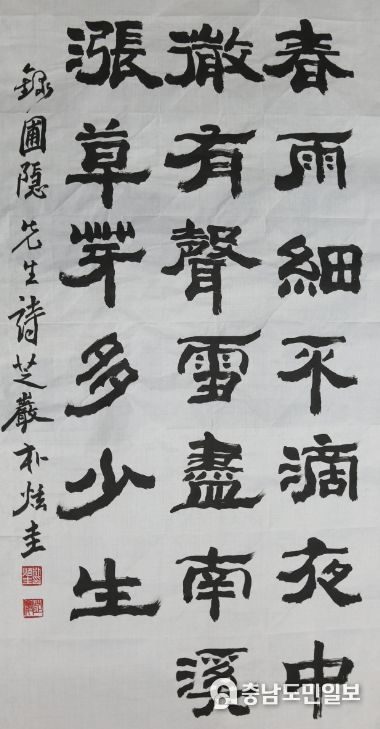 春雨細不滴夜中
微有聲雪盡南溪
漲草芽多少生
錄圃隱先生詩芝巖朴炫圭
충남도민일보